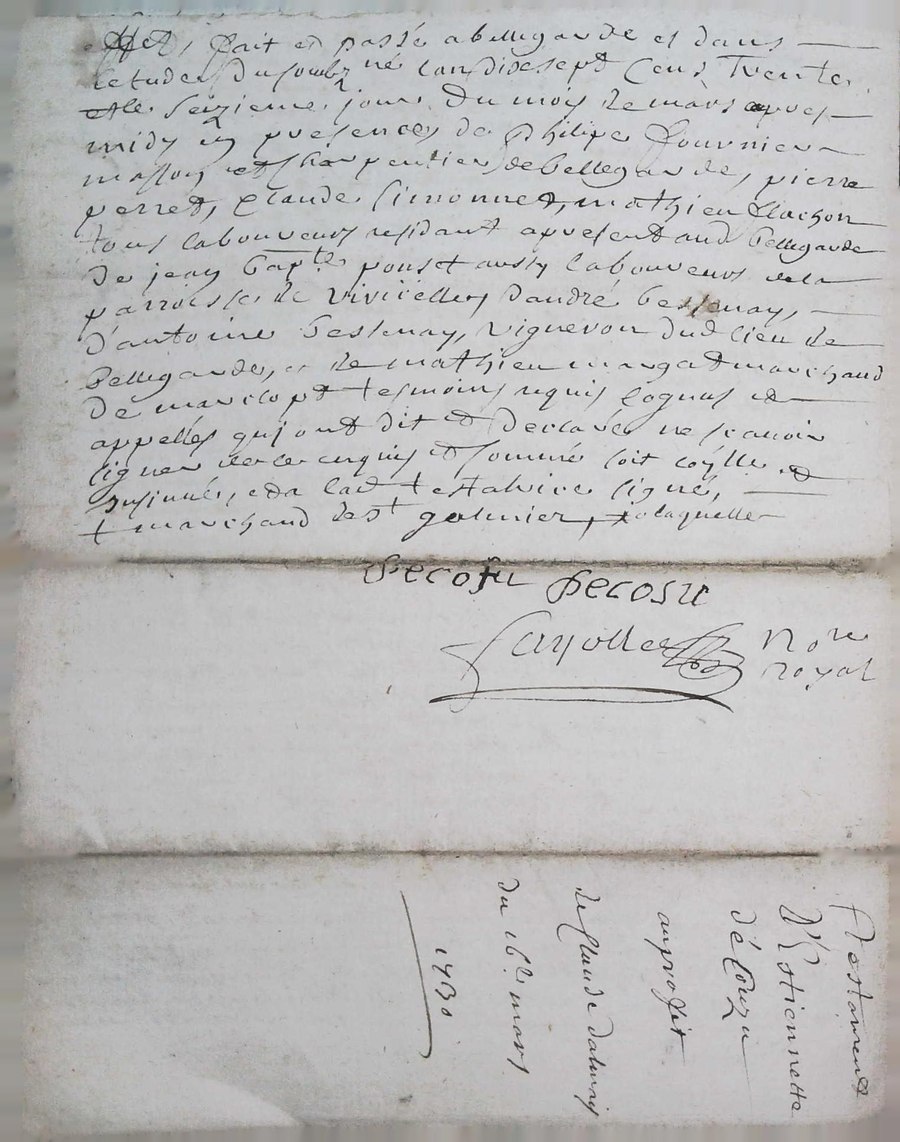 effet, fait et passé a bellegarde et dans
letude du soubz né lan dixsept cens trente
et le seizieme jour du mois de mars apres
midy en presences de philipe fournier
masson et charpentier de bellegarde, pierre
perret, claude simonnet, mathieu clachon
tous laboureurs residant apresent aud bellegarde
de jean bapte ponset aussy laboureur de la
parroisse de Rivirelles dandré bessenay,
d'antoine bessenay, vigneron dud lieu de
bellegarde, et de mathieu margat marchand
de marclopt + tesmoins requis cognus et
appellés qui ont dit et declarés ne scavoir
signer de ce enquis et sommé soit et
insinué, et a lad testatrice signé,
+ marchand de st galmier, x laquelle
decosu decosu
fayolle Nore
royal
testament
d'Estiennette
découzu
auproffit
de Claude
du 16e mars
1730